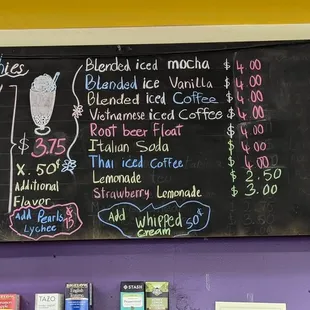 Blended iced mocha $ 4.00
Blended ice Vanilla $ 4.00
Blended iced Coffee $ 4.00
Vietnamese iced Coffee $ 4.00
Root beer Float $ 4.00
Italian Soda $ 4.00
Thai iced Coffee $ 4.00
Lemonade $ 2.50
Strawberry Lemonade $ 3.00
Add Whipped 50¢
Cream
$ 3.75
X .50¢
Additional
Flavor
Add Pearls
Lychee
TAZO
STASH